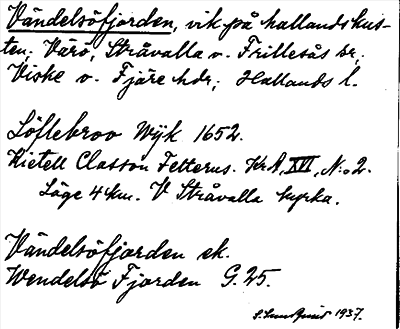 Vändelsöfjorden, vik på hallandskus-
ten; Värö, Stråvalla o. Frillesås sr;
Viske o. Fjäre hdr; Hallands l.
Löftebroo Wyk 1652.
Kietell Classon Felterus. Kr A, XVII, N:o 2.
Läge 4 km. V Stråvalla kyrka.
Vändelsöfjorden ek.
Wendelsö Fjorden G. 25.
1937.